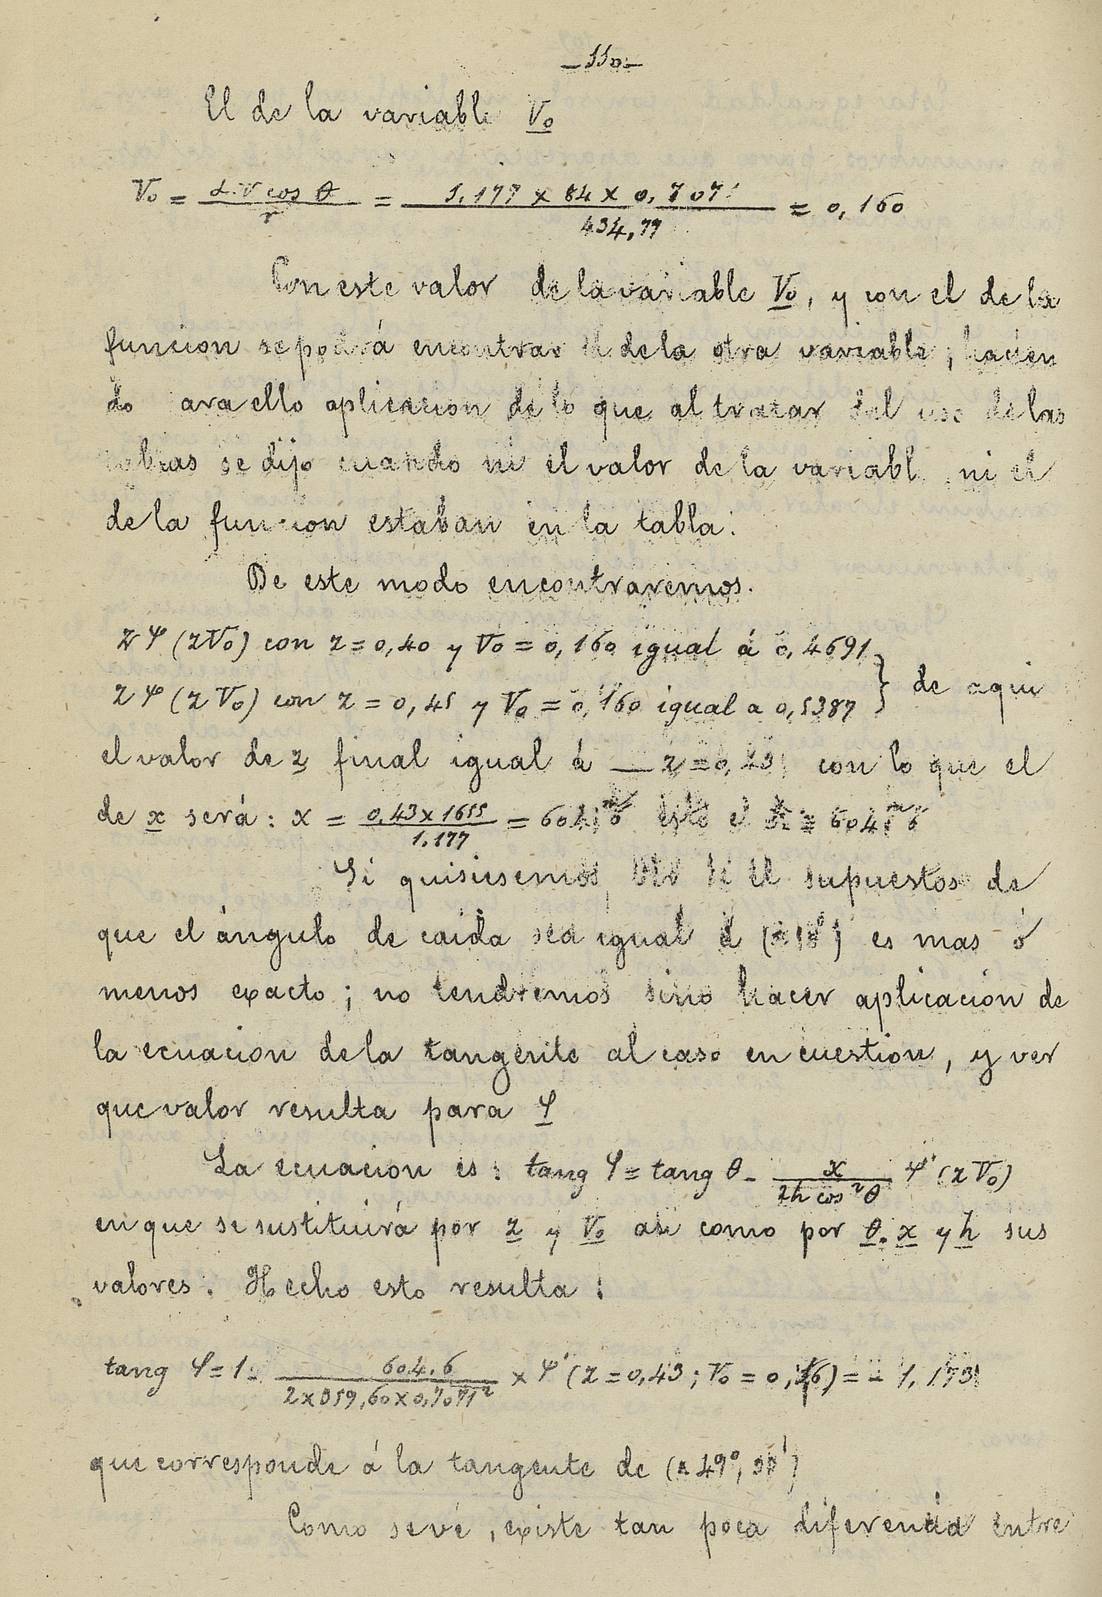 _110._
El de la variable V₀
V₀ = α.V cos θ / r = 1,177 x 84 x 0,7071 / 434,77 = 0,160
Con este valor de la variable V₀, y con el de la
funcion se podrá encontrar el de la otra variable; hacien
do para ello aplicacion de lo que al tratar del uso de las
tablas se dijo cuando ni el valor de la variable ni el
de la funcion estaban en la tabla.
De este modo encontraremos.
zΨ (zV₀) con z=0,40 y V₀=0,160 igual á 0,4691
zΨ (zV₀) con z=0,45 y V₀=0,160 igual a 0,5387 } de aqui
el valor de z final igual á _ z=0,43; con lo que el
de x será: x = 0,43x1655 / 1,177 = 604,ᵐ6 esto el = 604,ᵐ6
Si quisiesemos el supuesto de
que el ángulo de caida sea igual á es mas ó
menos exacto; no tendremos sino hacer aplicacion de
la ecuacion de la tangente al caso en cuestion, y ver
que valor resulta para φ
La ecuacion es: tang φ = tang θ - x / 2h cos²θ Ψ' (zV₀)
en que se sustituirá por z y V₀ asi como por θ, x y h sus
valores. Hecho esto resulta:
tang φ = 1 - 604,6 / 2x359,60x0,7071² x Ψ' (z=0,43; V₀=0,16) = - 1,173
que corresponde á la tangente de
Como se vé, existe tan poca diferencia entre